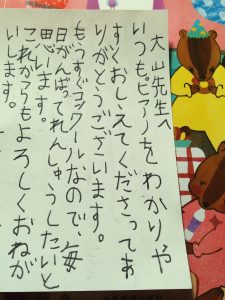 大山先生へ
いつも。ピアノをわかりや
すくおしえてくださってあ
りがとうございます。
もうすぐコンクールなので、毎
日がんばってれんしゅうしたいと
思います。
これからもよろしくおねが
いします。